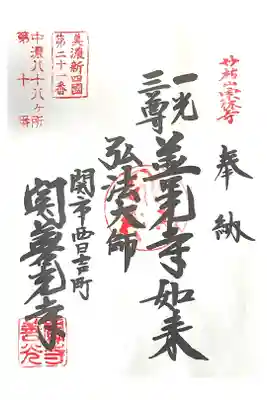 奉納
一光
三尊
善光寺如来
弘法大師
関市西日吉町
関善光寺
美濃新四國
第二十一番
中濃八十八ヶ所
第十番